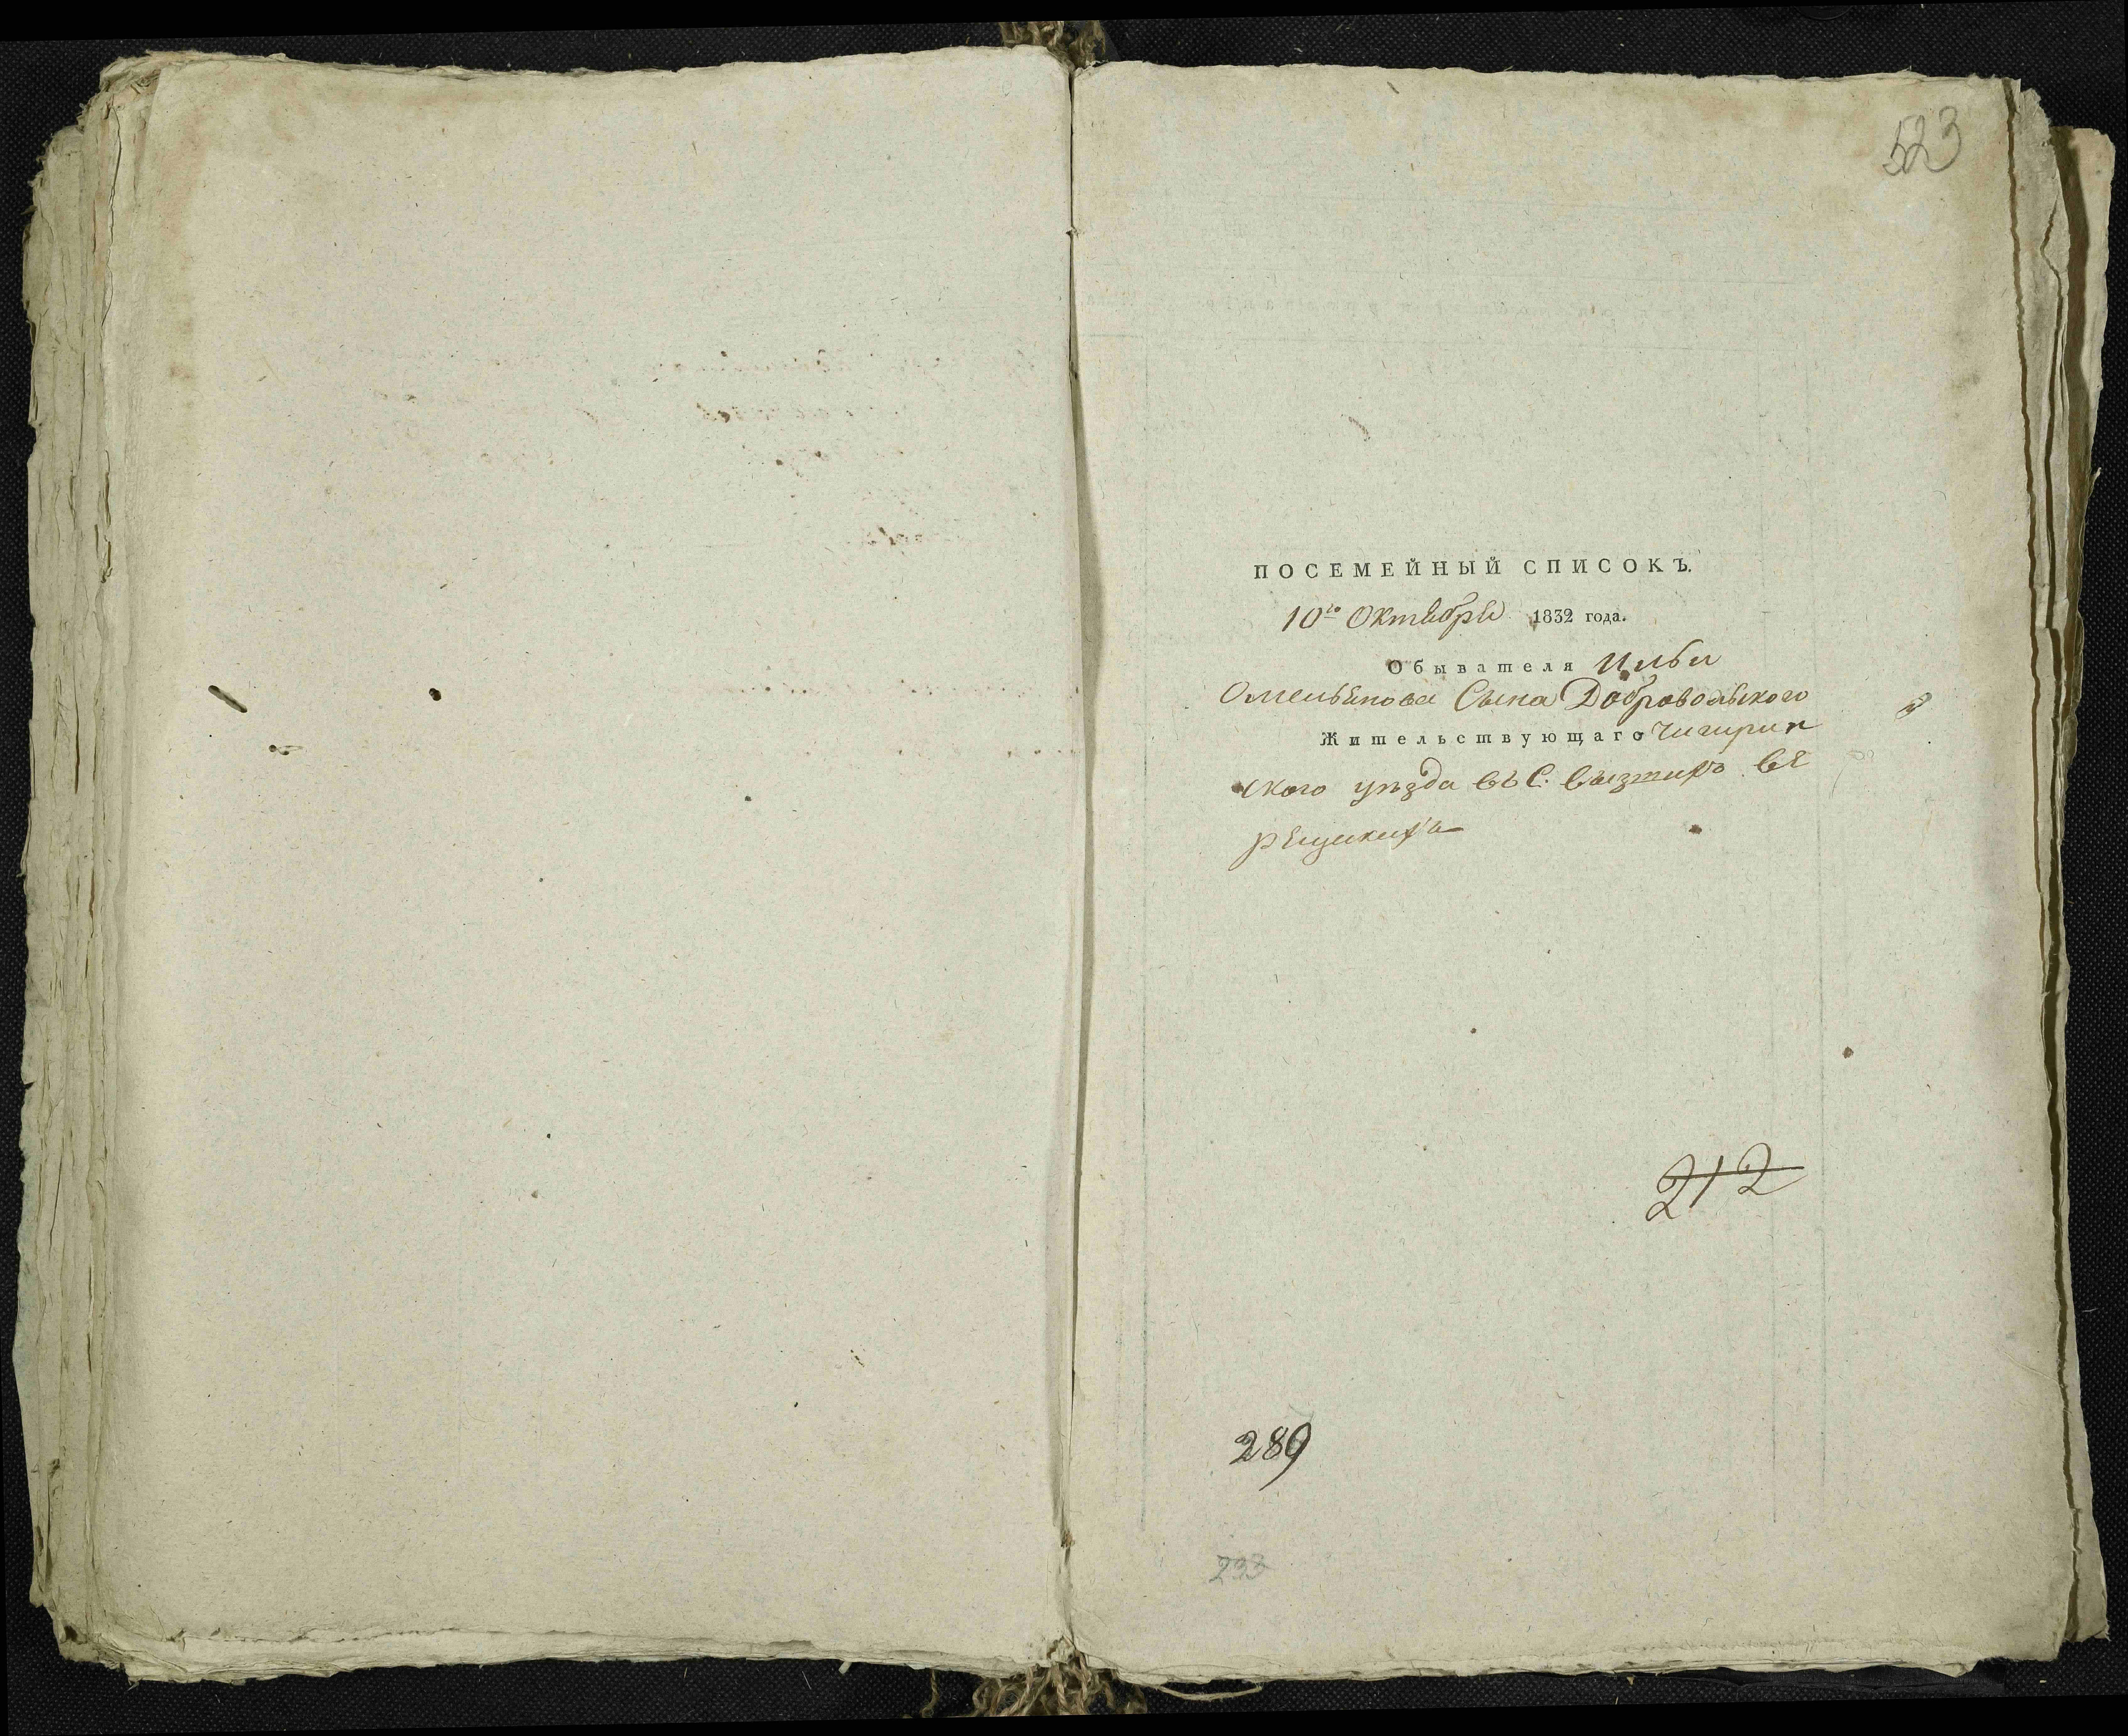 523
ПОСЕМЕЙНЫЙ СПИСОКЪ.
10го Октября 1832 года.
Обывателя Ильи
Омельянова Сына Добровольского
Жительствующаго Чигирин
ского уѣзда въ С.
212
289
233